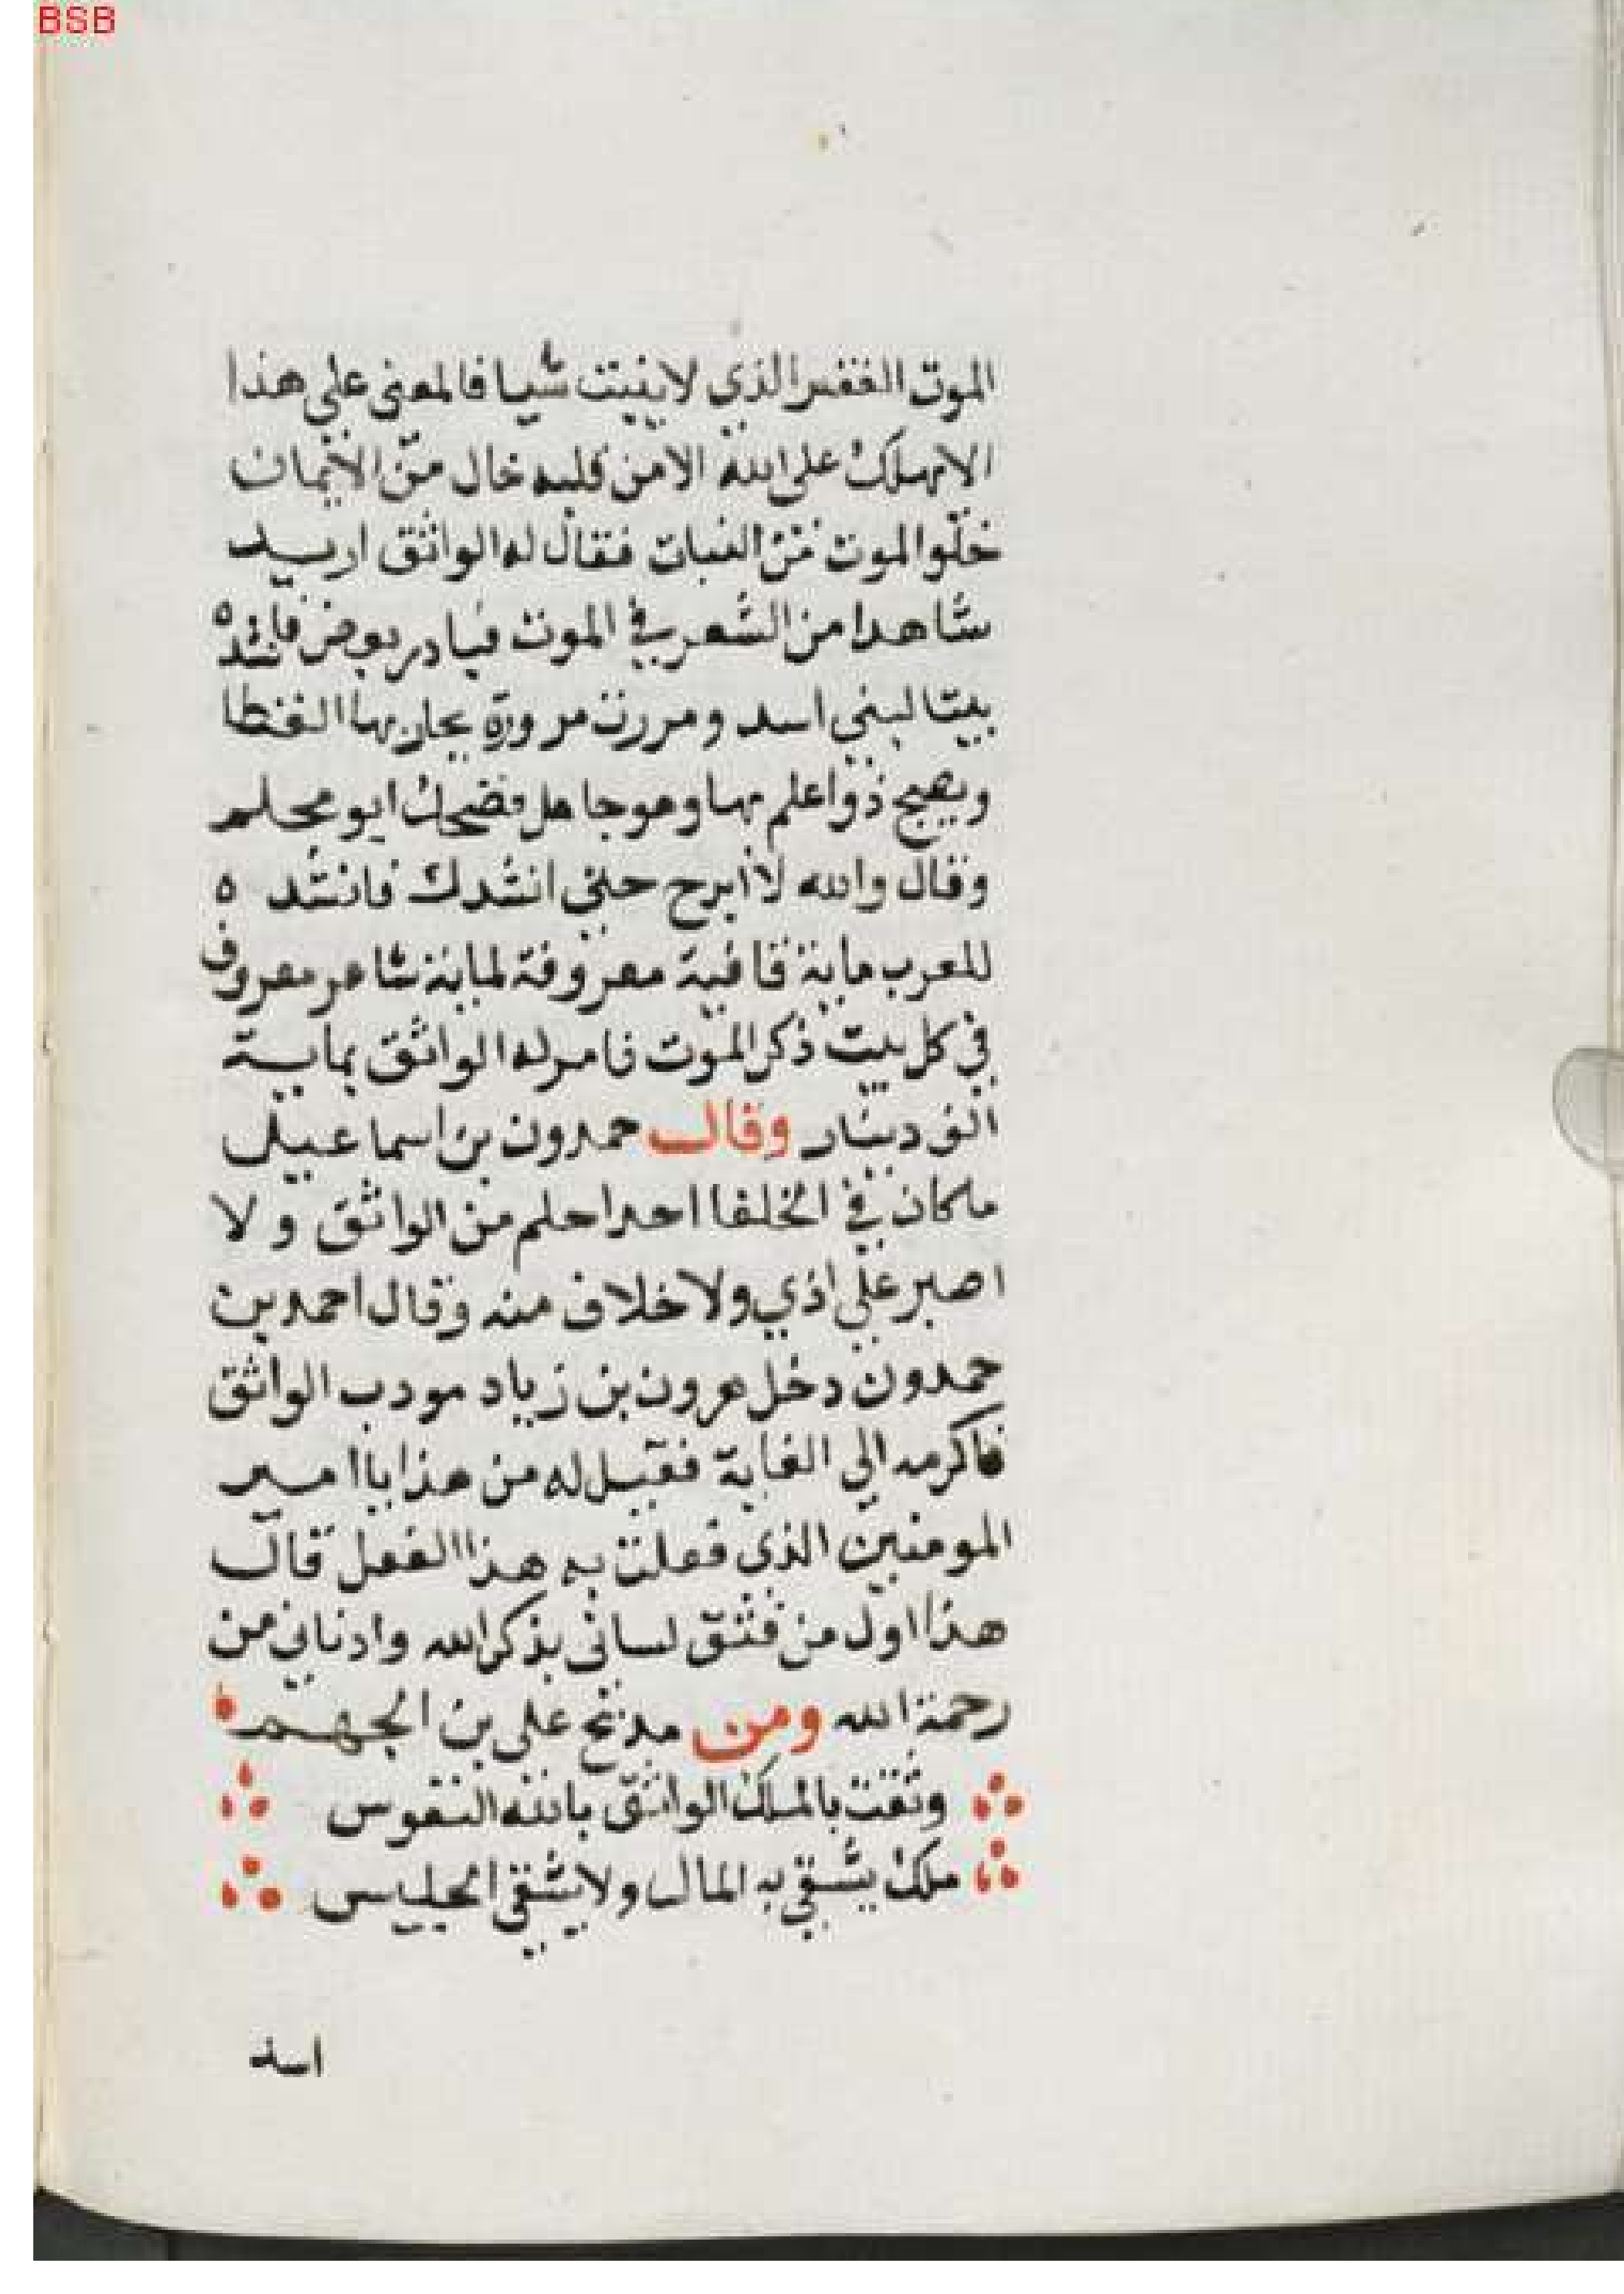 BSB
الموت القفر الذي لا ينبت شيا فالمعنى علي هذا
الا يهلك على الله الا من قلبه خال من الايمان
خلوا الموت من النبات فقال له الواثق اريد
شاهدا من الشعر في الموت فبادر بعض فانشده
بيتا لبني اسد ومررت مروراة يحار بها القطا
ويصبح ذوا علم بها وهو جاهل فضحك ابو محلم
وقال والله لا ابرح حتي انشدك فانشد ه
للعرب ماية قافية معروفة لماية شاعر معروف
في كل بيت ذكر الموت فامر له الواثق بماية
الف دينار وقال حمدون بن اسماعيل
ماكان في الخلفا احدا حلم من الواثق ولا
اصبر علي اذي ولا خلاف منه وقال احمد بن
حمدون دخل هرون بن زياد مودب الواثق
فاكرمه الي الغاية فقيل له من هذا ياامير
المومنين الذى فعلت به هذا الفعل قال
هذا اول من فتق لسانى بذكر الله وادناني من
رحمة الله ومن مدح على بن الجهم
وثقت بالملك الواثق بالله النفوس
ملك يشقي به المال ولا يشقي الجليس
اسد